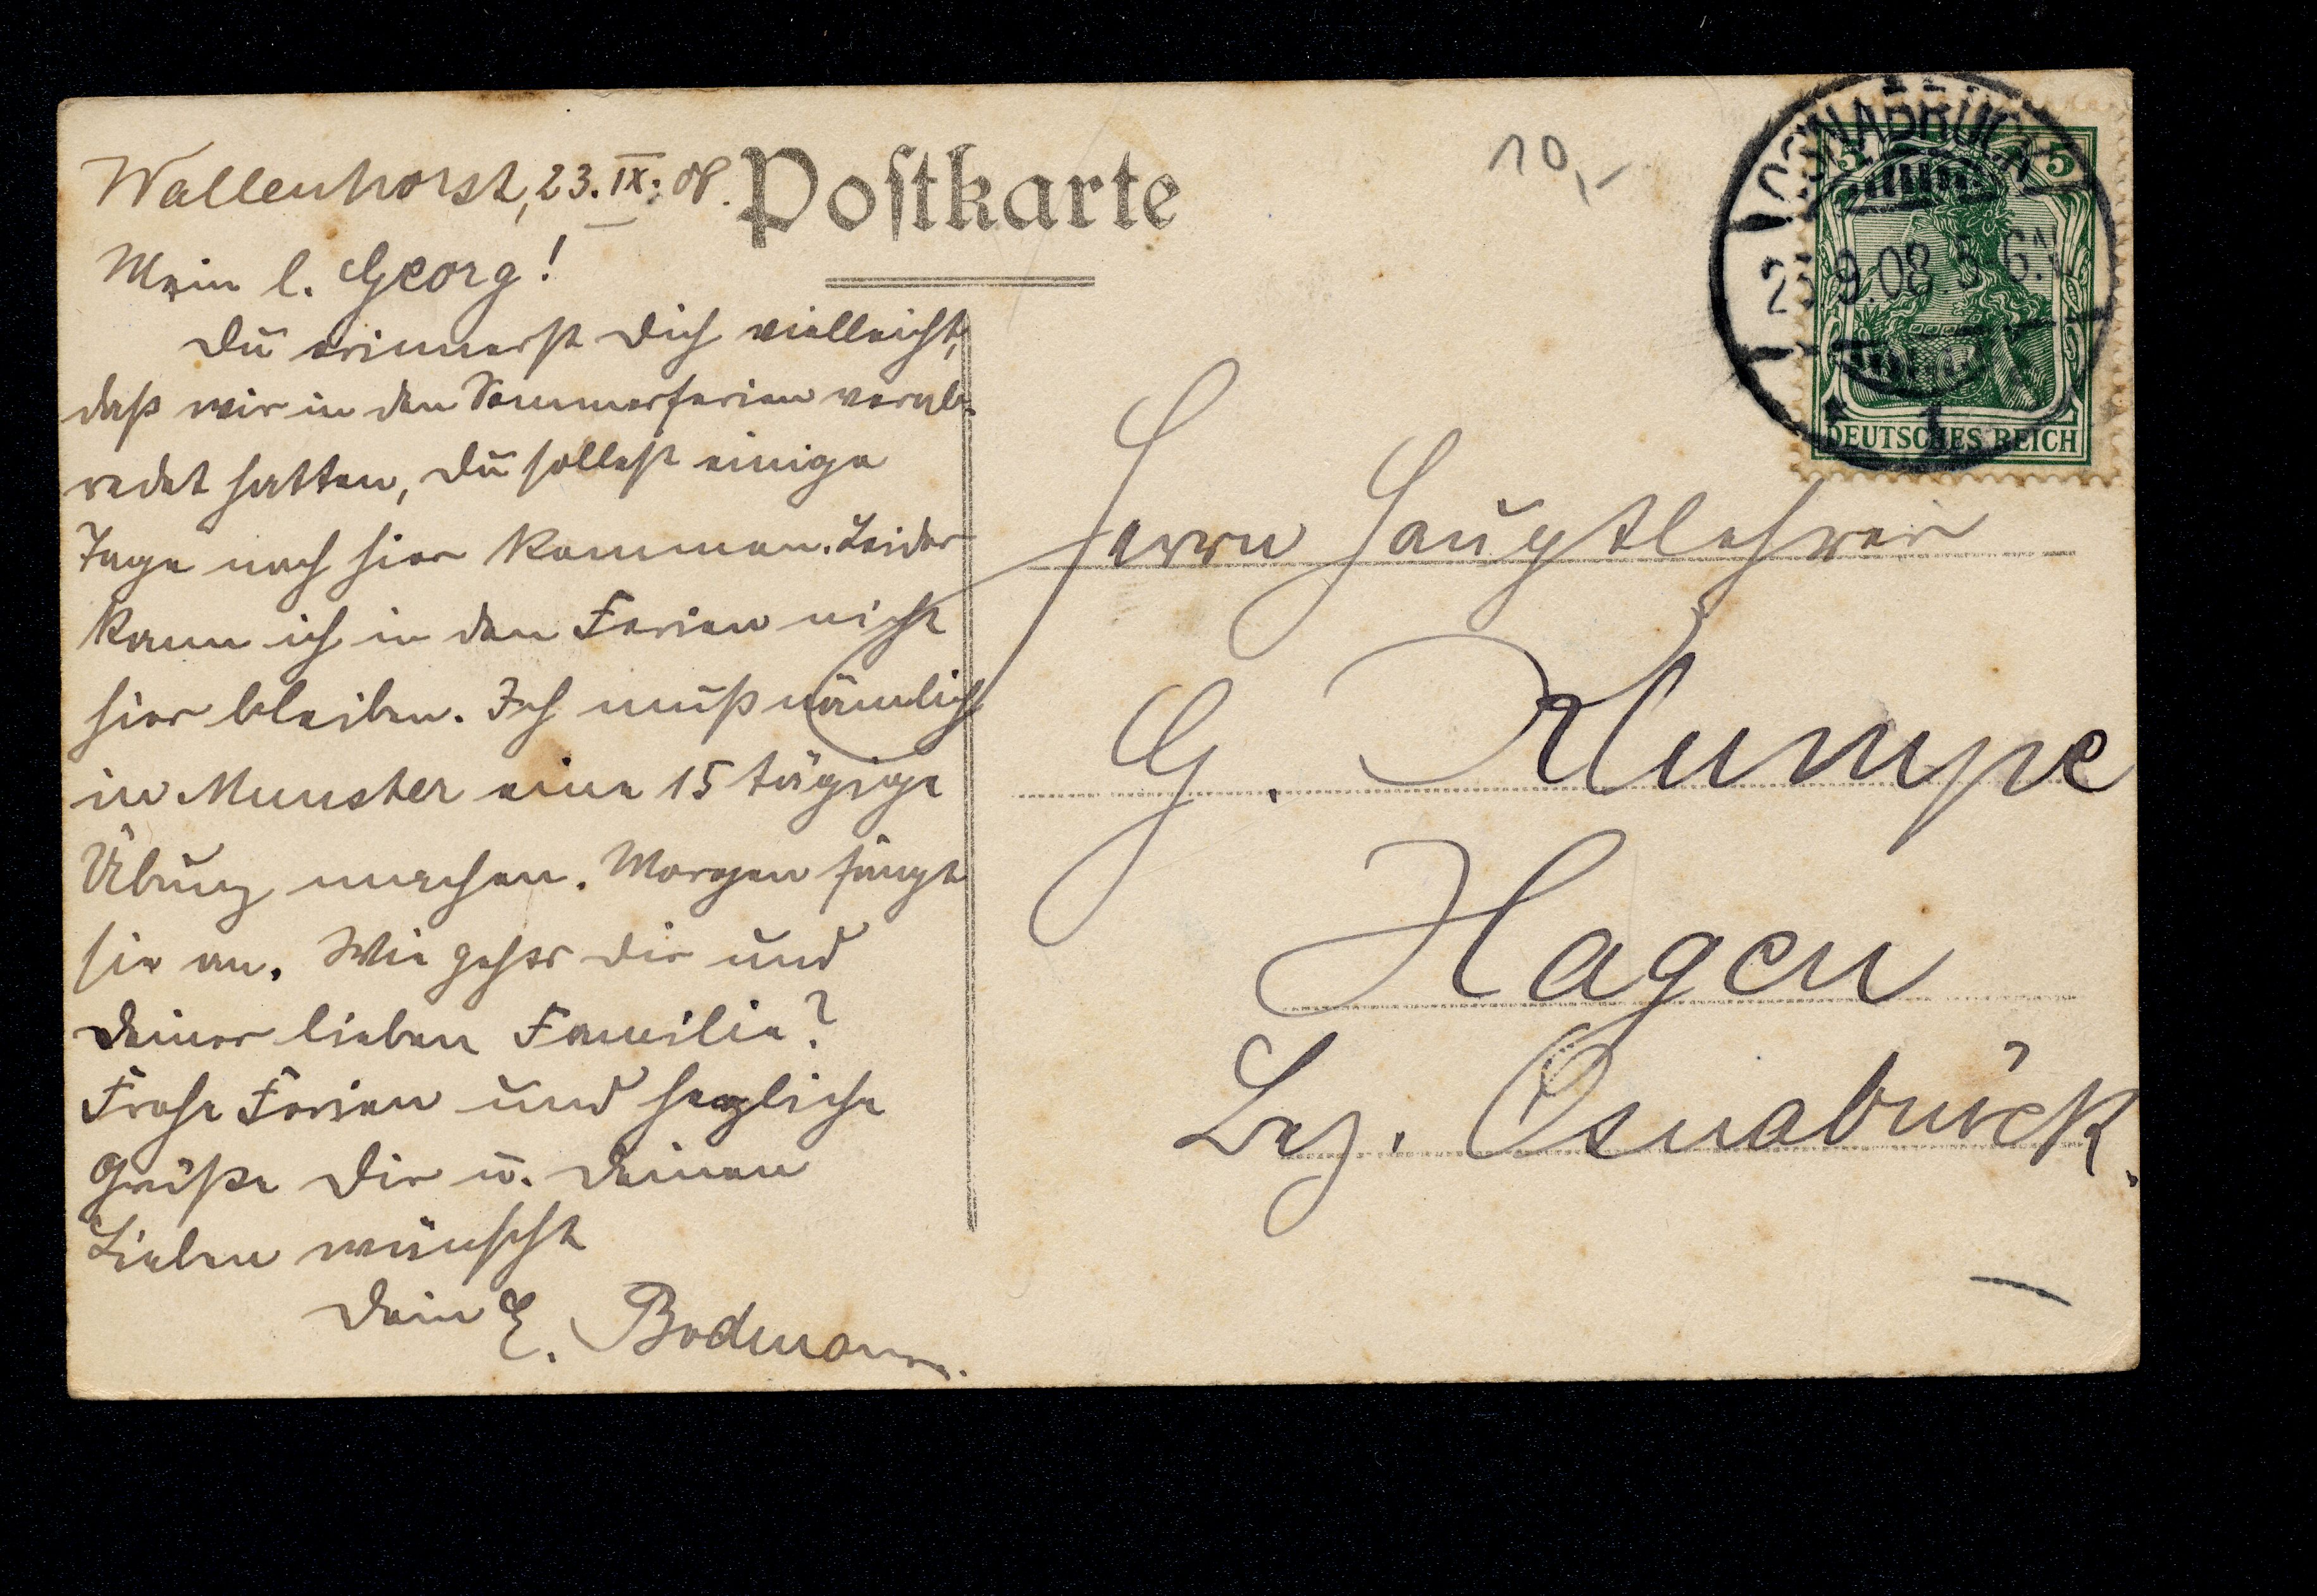 Wallenhorst, 23. IX. 08.
Postkarte
10,-
Mein l. Georg!
Du erinnerst Dich vielleicht,
daß wir in den Sommerferien verab-
redet hatten, Du sollest einige
Tage nach hier kommen. Leider
kann ich in den Ferien nicht
hier bleiben. Ich muß nämlich
in Munster eine 15 tägige
Übung machen. Morgen fängt
sie an. Wie gehts Dir und
Deiner lieben Familie?
Frohe Ferien und herzliche
Grüße Dir u. Deinen
Lieben wünscht
Dein E. Bodmann.
OSNABRÜCK
9.08 5-6 N
* 1
5 5
DEUTSCHES REICH
Herrn Hauptlehrer
G. Klumpe
Hagen
Bez. Osnabrück.